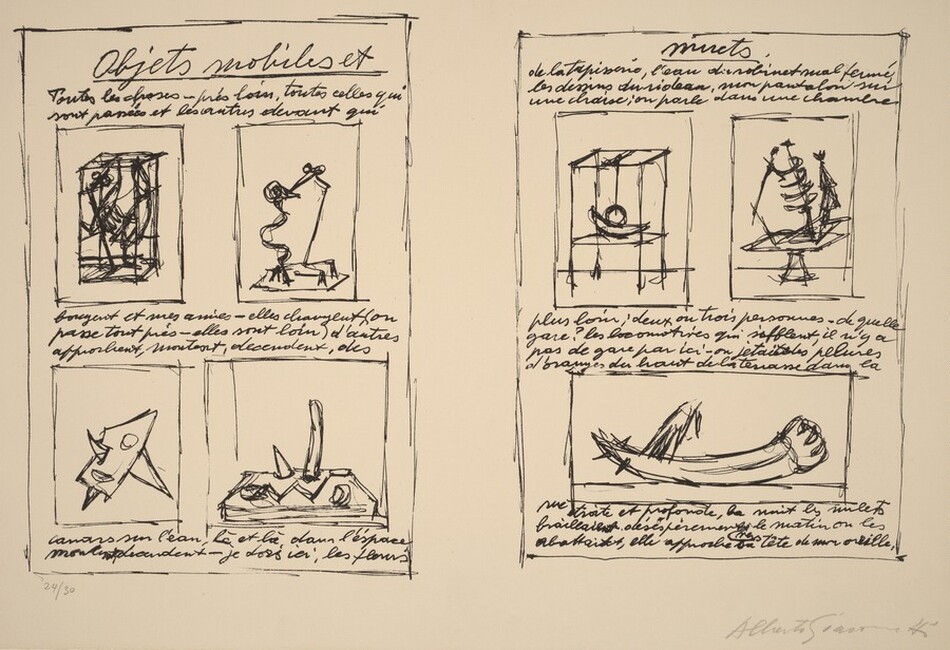 Objets mobiles et
Toutes les choses – près, loin, toutes celles qui
sont passées et les autres devant qui
bougent et mes amies – elles changent (on
passe tout près – elles sont loin) d'autres
approchent, montent, descendent, des
canars sur l'eau, là et là, dans l'éspace
montent, descendent – je dors ici, les fleurs
24/30
muets
de la tapisserie, l'eau du robinet mal fermé,
les dessins du rideau, mon pantalon sur
une chaise; on parle dans une chambre
plus loin; deux ou trois personnes – de quelle
gare? les locomotives qui sifflent, il n'y a
pas de gare par ici – on jetait des pelures
d'oranges du haut de la terrasse dans la
rue étroite et profonde, la nuit les mulets
braillaient désésperement, le matin on les
abattait, elle approche sa tête de mon oreille,
Alberto Giacometti